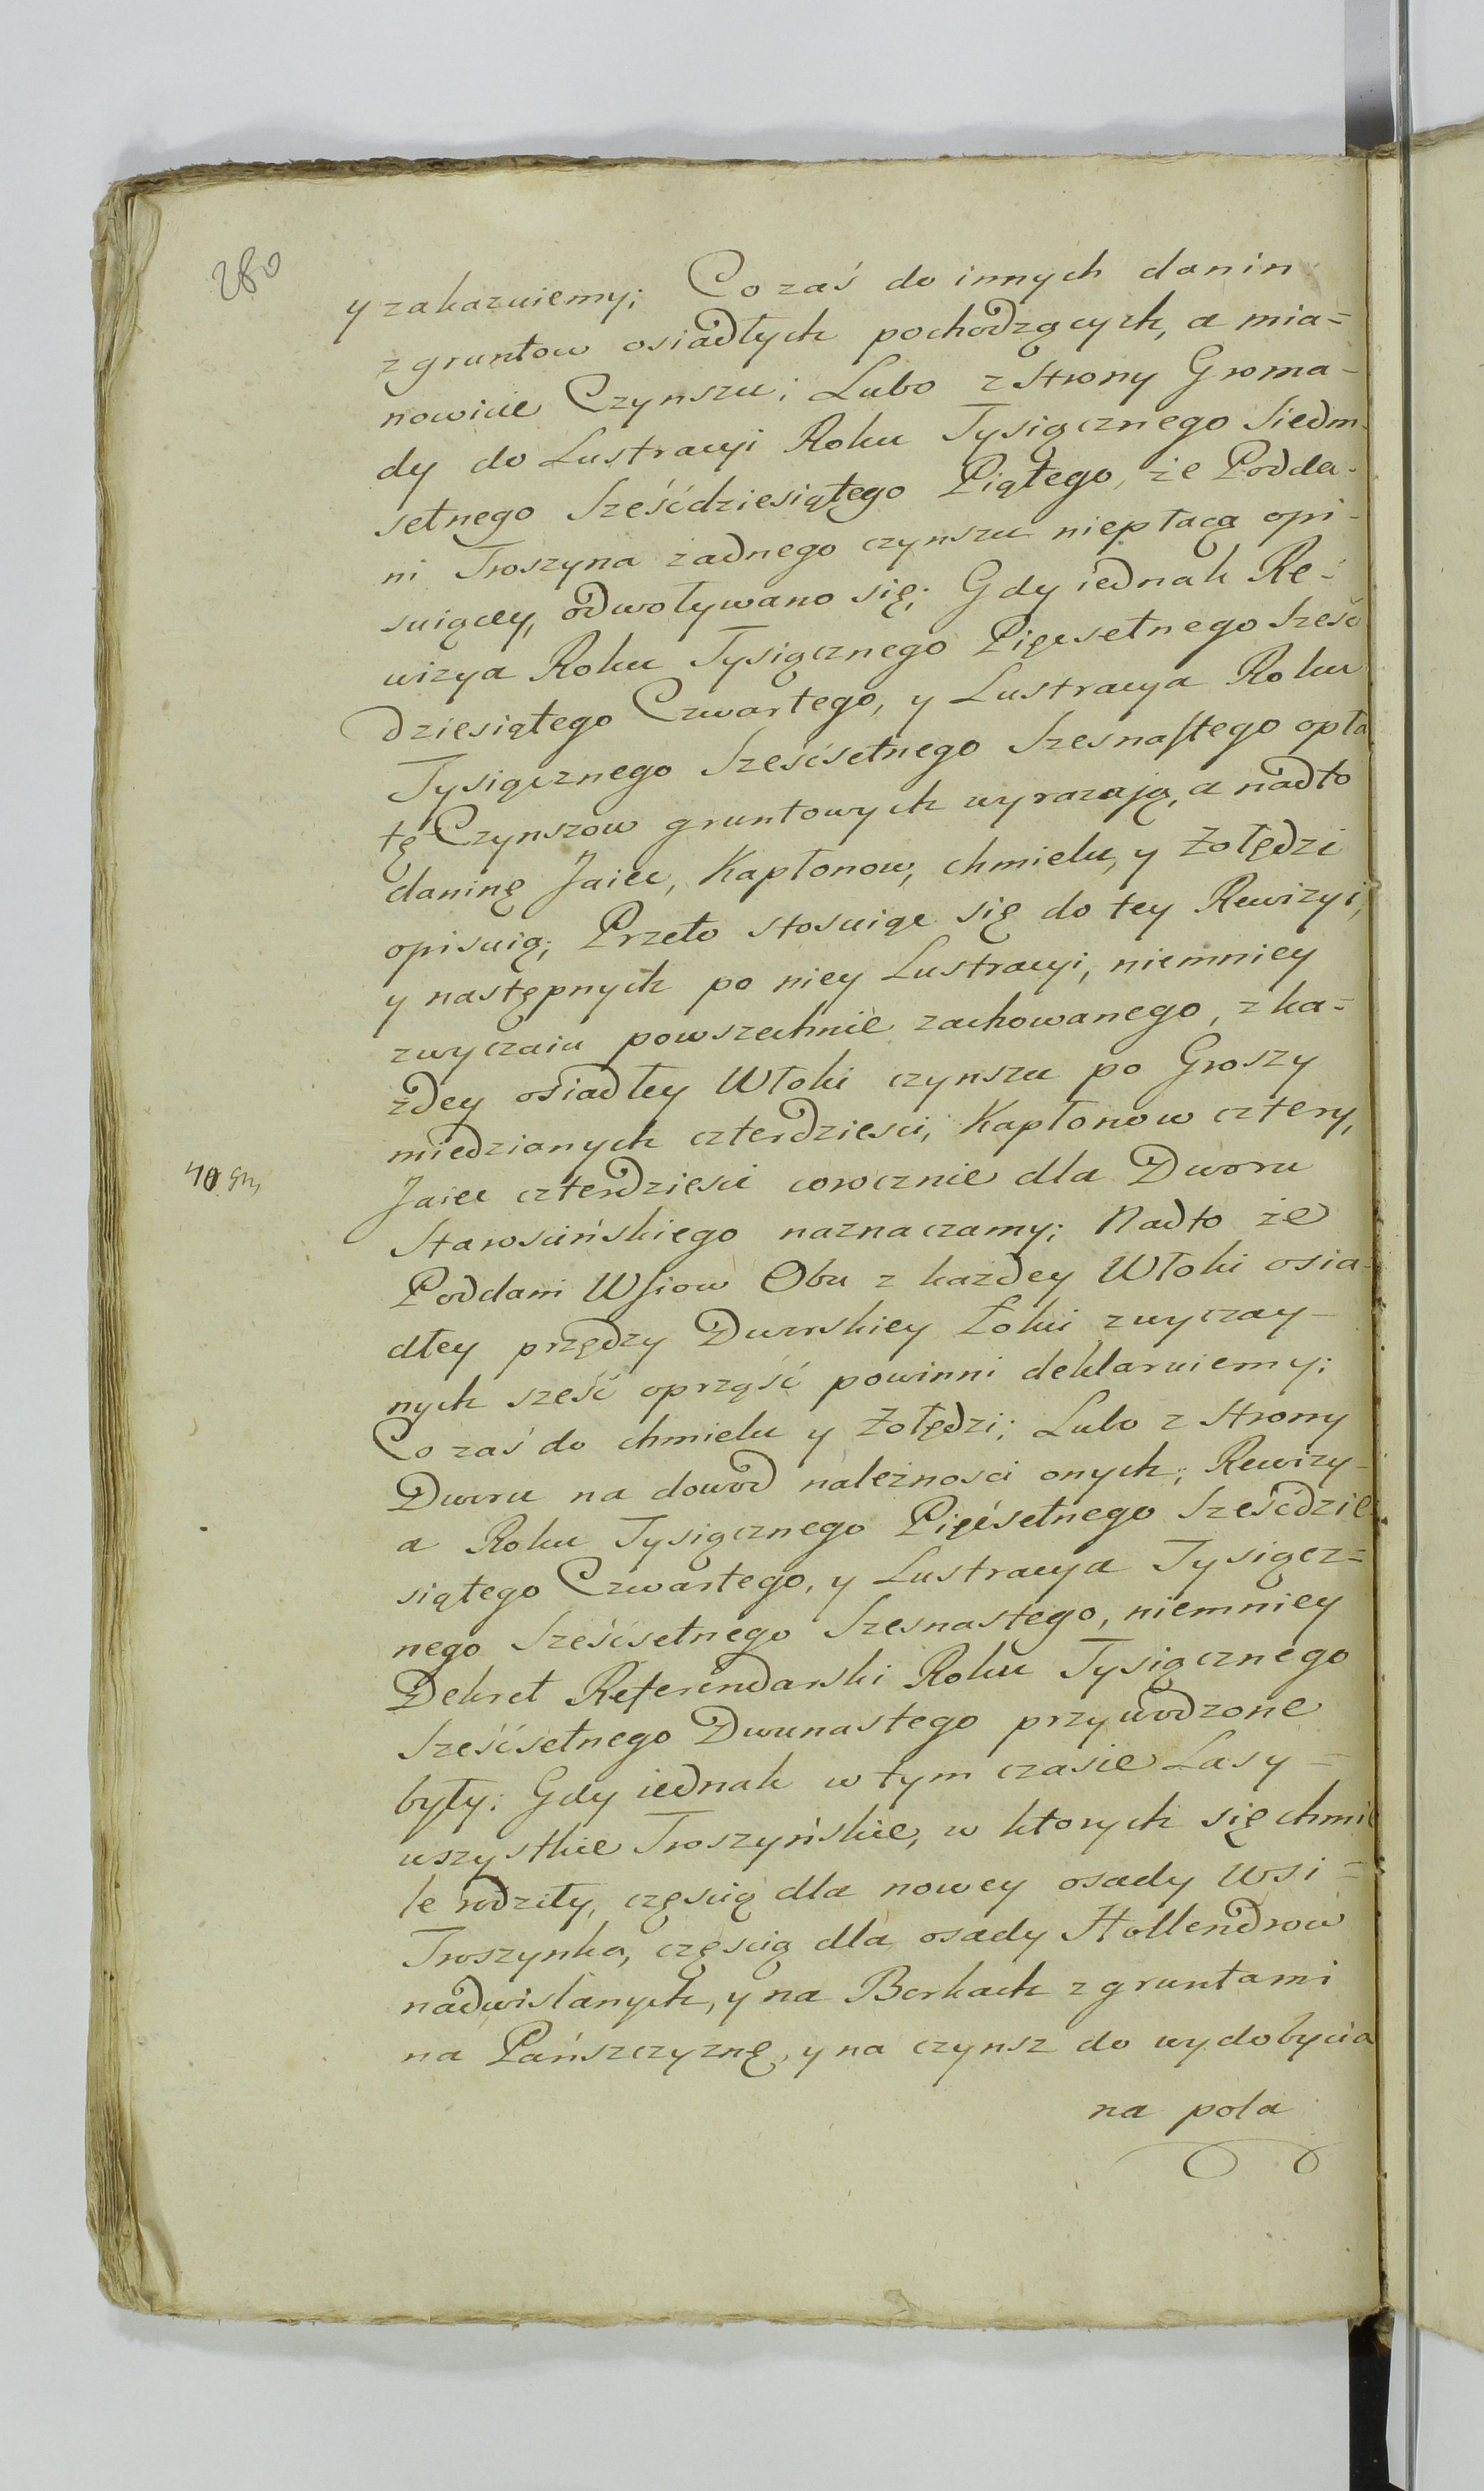 280
y zakazuiemy; Co zaś do innych danin
z gruntow osiadłych pochodzących, a mia=
nowicie Czynszu; Lubo z strony Groma-
dy do Lustracyi Roku Tysiącznego Siedm-
setnego Sześćdziesiątego Piątego, że Podda-
ni Troszyna żadnego czynszu niepłacą opi-
suiącey, odwoływano się; Gdy iednak Re-
wizya Roku Tysiącznego Pięcsetnego Sześć
dziesiątego Czwartego, y Lustracya Roku
Tysiącznego Sześcsetnego Szesnastego opła
tę Czynszow gruntowych wyrazają, a nadto
daninę Jaiec, Kapłonow, chmielu, y Żołędzi
opisuią; Przeto stosuiąc się do tey Rewizyi,
y następnych po niey Lustracyi, niemniey
zwyczaiu powszechnie zachowanego, z ka=
żdey osiadłey Włoki czynszu po Groszy
miedzianych czterdziesci, Kapłonow cztery,
40 gr,
Jaiec czterdziesci corocznie dla Dworu
Starościńskiego naznaczamy; Nadto że
Poddani Wsiow Obu z każdey Włoki osia-
dłey przędzy Dworskiey Łokci zwyczay-
nych sześć oprząść powinni deklaruiemy;
Co zaś do chmielu y Żołędzi; Lubo z strony
Dworu na dowod należnosci onych; Rewizy-
a Roku Tysiącznego Pięćsetnego Sześćdzie
siątego Czwartego, y Lustracya Tysiącz=
nego Sześcsetnego Szesnastego, niemniey
Dekret Referendarski Roku Tysiącznego
Sześćsetnego Dwunastego przywodzone
były; Gdy iednak w tym czasie Lasy=
wszystkie Troszyńskie, w ktorych się chmie
le rodziły, częscią dla nowey osady Wsi=
Troszynka, częscią dla osady Hollendrow
nadwislanych, y na Borkach z gruntami
na Pańszczyznę, y na czynsz do wydobycia
na pola